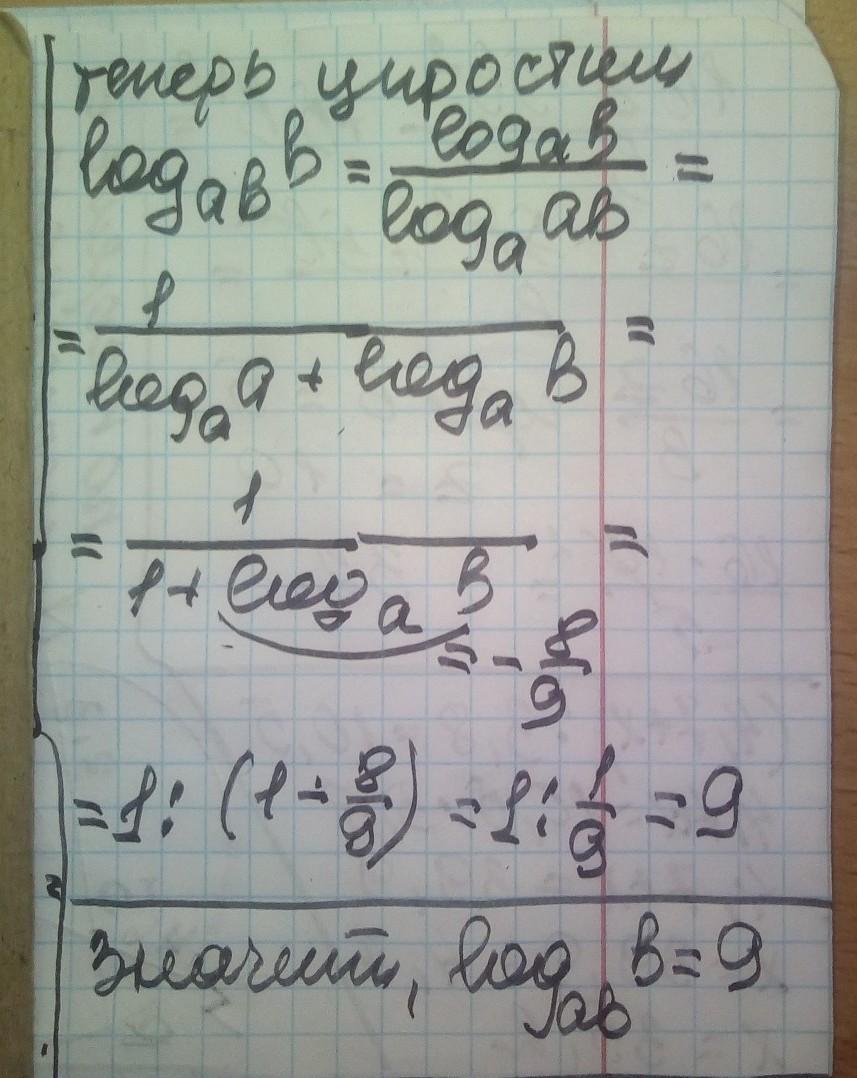 теперь упростим
log_{ab} b = \frac{log_a b}{log_a ab} =
= \frac{1}{log_a a + log_a b} =
= \frac{1}{1 + log_a b} =
= - \frac{8}{9}
= 1 : (1 - \frac{8}{9}) = 1 : \frac{1}{9} = 9
значит, log_{ab} b = 9